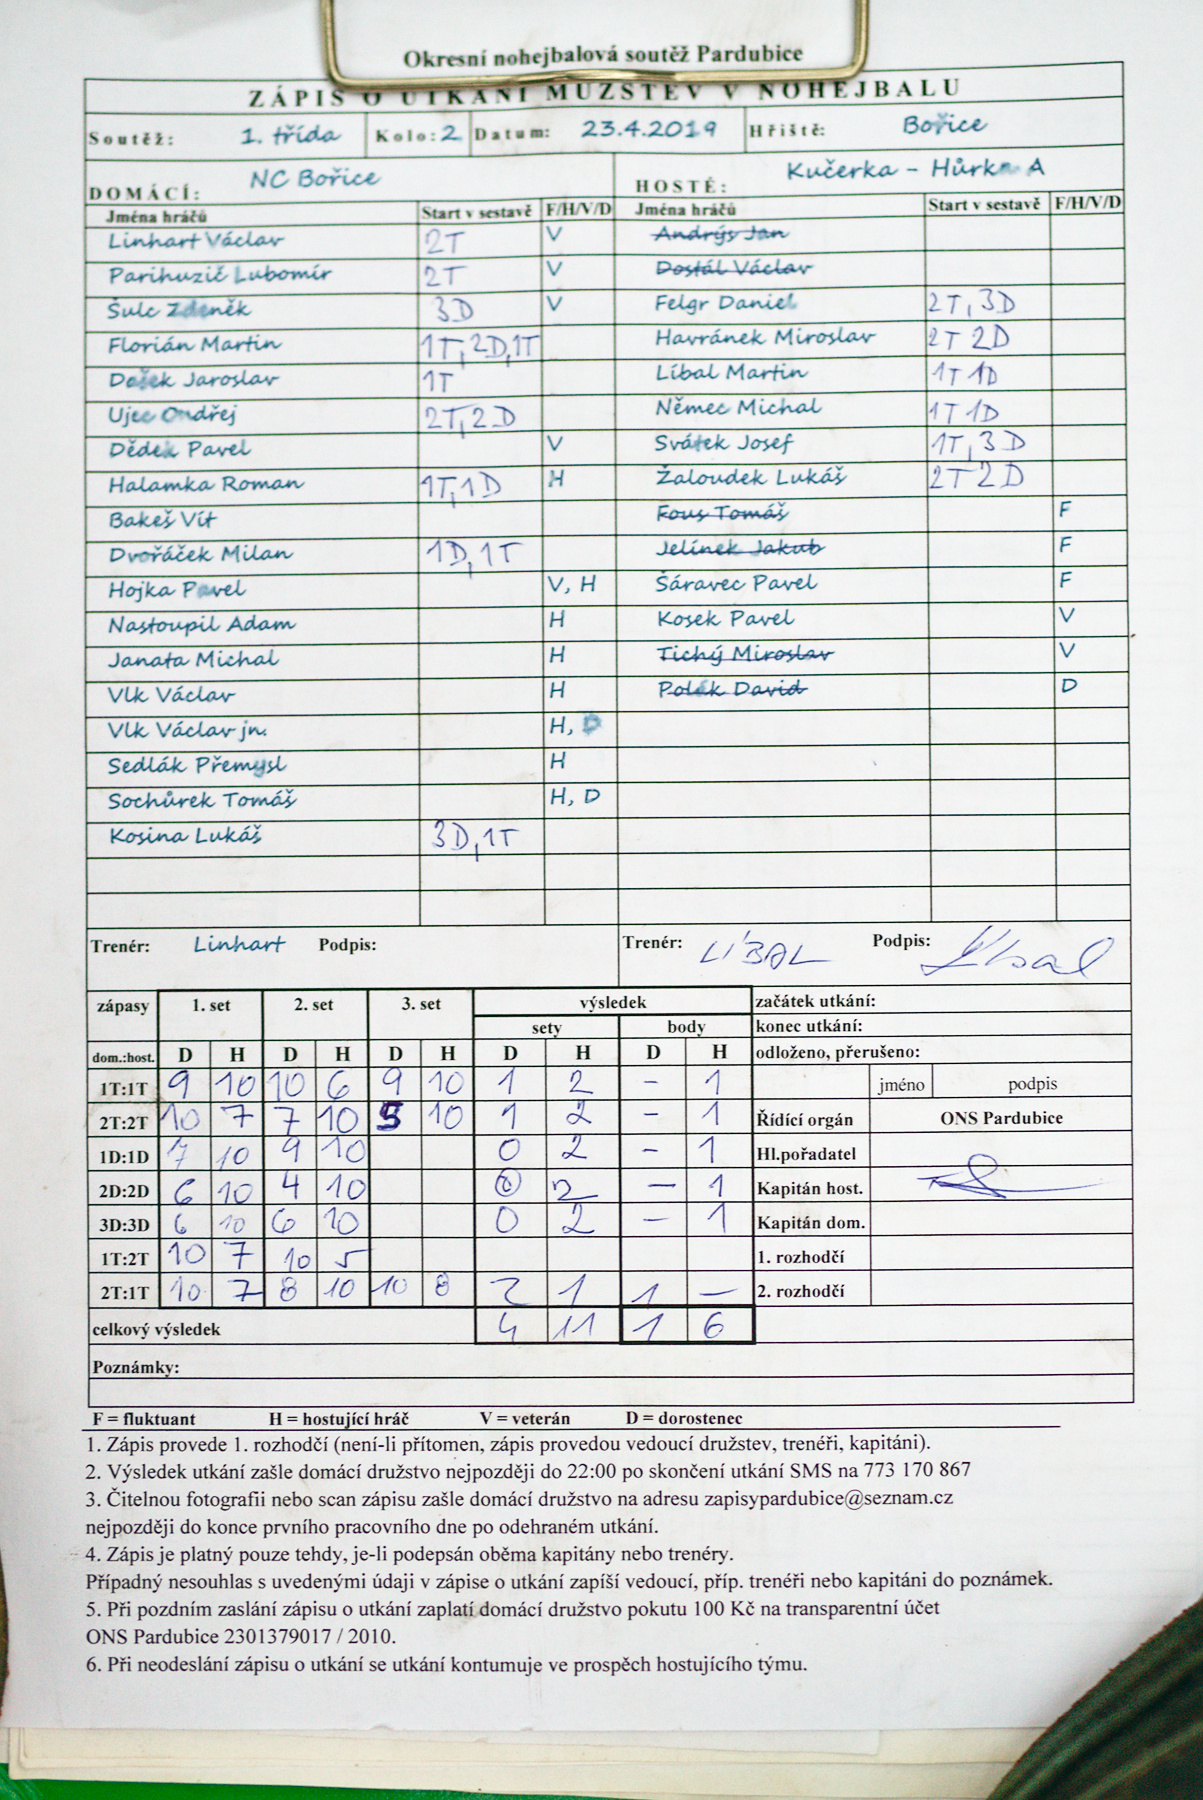 Okresní nohejbalová soutěž Pardubice
ZÁPIS O UTKÁNÍ MUŽSTEV V NOHEJBALU
Soutěž: 1. třída Kolo: 2 Datum: 23.4.2019 Hřiště: Bořice
DOMÁCÍ: NC Bořice HOSTÉ: Kučerka - Hůrka A
Jména hráčů Start v sestavě F/H/V/D Jména hráčů Start v sestavě F/H/V/D
Linhart Václav 2T V Andrýs Jan
Parihuzič Lubomír 2T V Dostál Václav
Šulc Zdeněk 3D V Felgr Daniel 2T, 3D
Florián Martin 1T, 2D, 1T Havránek Miroslav 2T 2D
Jaroslav 1T Líbal Martin 1T 1D
Ujec Ondřej 2T, 2D Němec Michal 1T 1D
Dědek Pavel V Svátek Josef 1T, 3D
Halamka Roman 1T, 1D H Žaloudek Lukáš 2T 2D
Bakeš Vít Fous Tomáš F
Dvořáček Milan 1D, 1T Jelínek Jakub F
Hojka Pavel V, H Šáravec Pavel F
Nastoupil Adam H Kosek Pavel V
Janata Michal H Tichý Miroslav V
Vlk Václav H Polák David D
Vlk Václav jn. H, D
Sedlák Přemysl H
Sochůrek Tomáš H, D
Kosina Lukáš 3D, 1T
Trenér: Linhart Podpis: Trenér: LÍBAL Podpis:
zápasy 1. set 2. set 3. set výsledek začátek utkání:
sety body konec utkání:
dom.:host. D H D H D H D H D H odloženo, přerušeno:
1T:1T 9 10 10 6 9 10 1 2 - 1 jméno podpis
2T:2T 10 7 7 10 5 10 1 2 - 1 Řídící orgán ONS Pardubice
1D:1D 7 10 9 10 0 2 - 1 Hl.pořadatel
2D:2D 6 10 4 10 0 2 - 1 Kapitán host.
3D:3D 6 10 6 10 0 2 - 1 Kapitán dom.
1T:2T 10 7 10 5 1. rozhodčí
2T:1T 10 7 8 10 10 8 2 1 1 - 2. rozhodčí
celkový výsledek 4 11 1 6
Poznámky:
F = fluktuant H = hostující hráč V = veterán D = dorostenec
1. Zápis provede 1. rozhodčí (není-li přítomen, zápis provedou vedoucí družstev, trenéři, kapitáni).
2. Výsledek utkání zašle domácí družstvo nejpozději do 22:00 po skončení utkání SMS na 773 170 867
3. Čitelnou fotografii nebo scan zápisu zašle domácí družstvo na adresu zapisypardubice@seznam.cz
nejpozději do konce prvního pracovního dne po odehraném utkání.
4. Zápis je platný pouze tehdy, je-li podepsán oběma kapitány nebo trenéry.
Případný nesouhlas s uvedenými údaji v zápise o utkání zapíší vedoucí, příp. trenéři nebo kapitáni do poznámek.
5. Při pozdním zaslání zápisu o utkání zaplatí domácí družstvo pokutu 100 Kč na transparentní účet
ONS Pardubice 2301379017 / 2010.
6. Při neodeslání zápisu o utkání se utkání kontumuje ve prospěch hostujícího týmu.